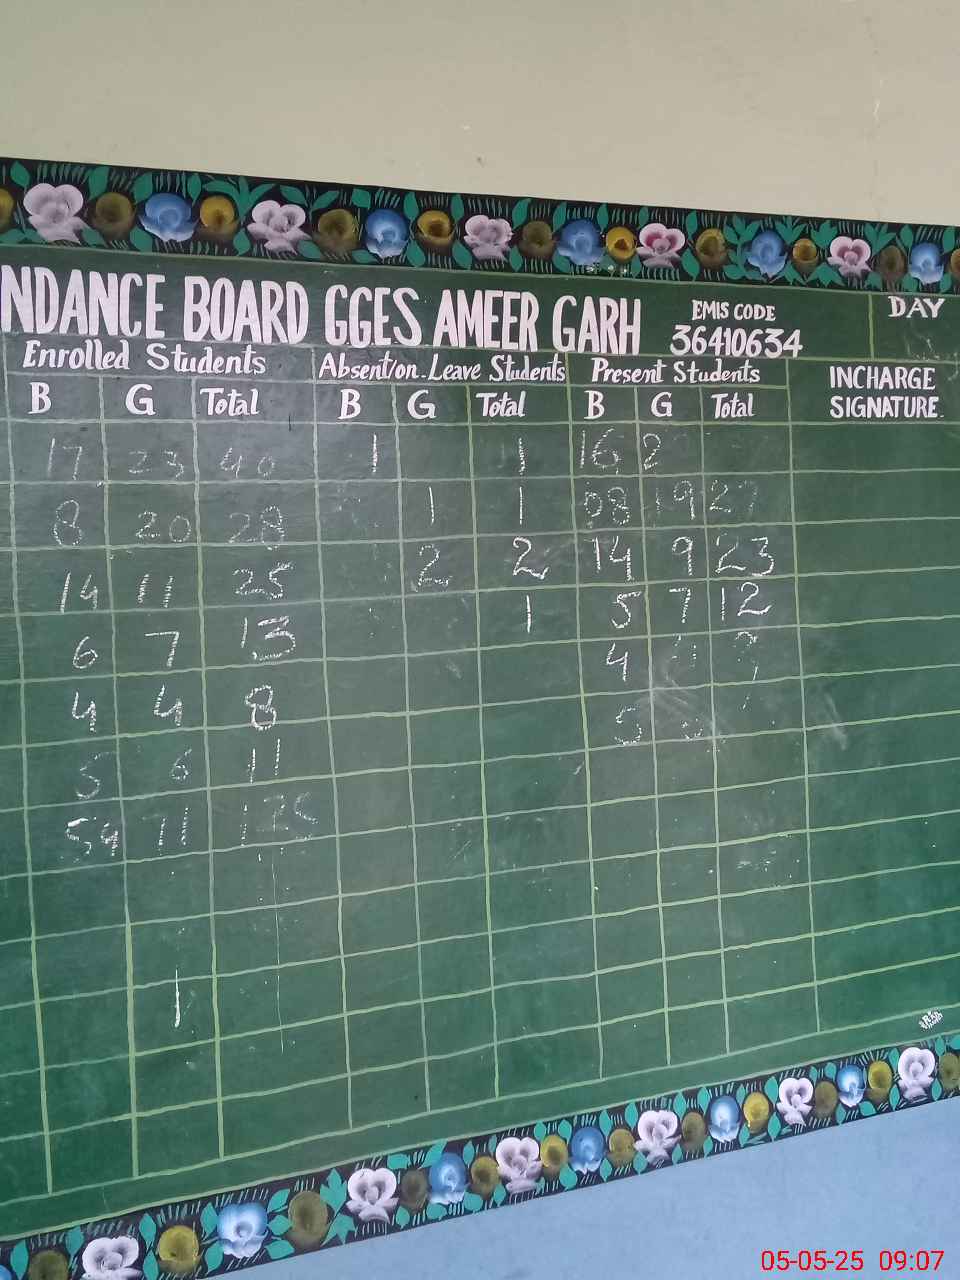 NDANCE BOARD GGES AMEER GARH EMIS CODE 36410634 DAY
Enrolled Students Absent/on.Leave Students Present Students INCHARGE SIGNATURE.
B G Total B G Total B G Total
17 23 40 1 1 16 2
8 20 28 1 1 08 19 27
14 11 25 2 2 14 9 23
6 7 13 1 5 7 12
4 4 8 4
5 6 11 5
59 71
05-05-25 09:07